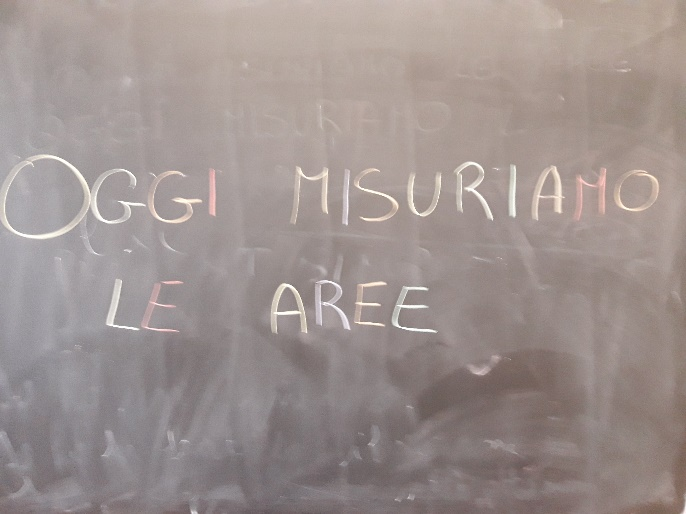 OGGI MISURIAMO
LE AREE